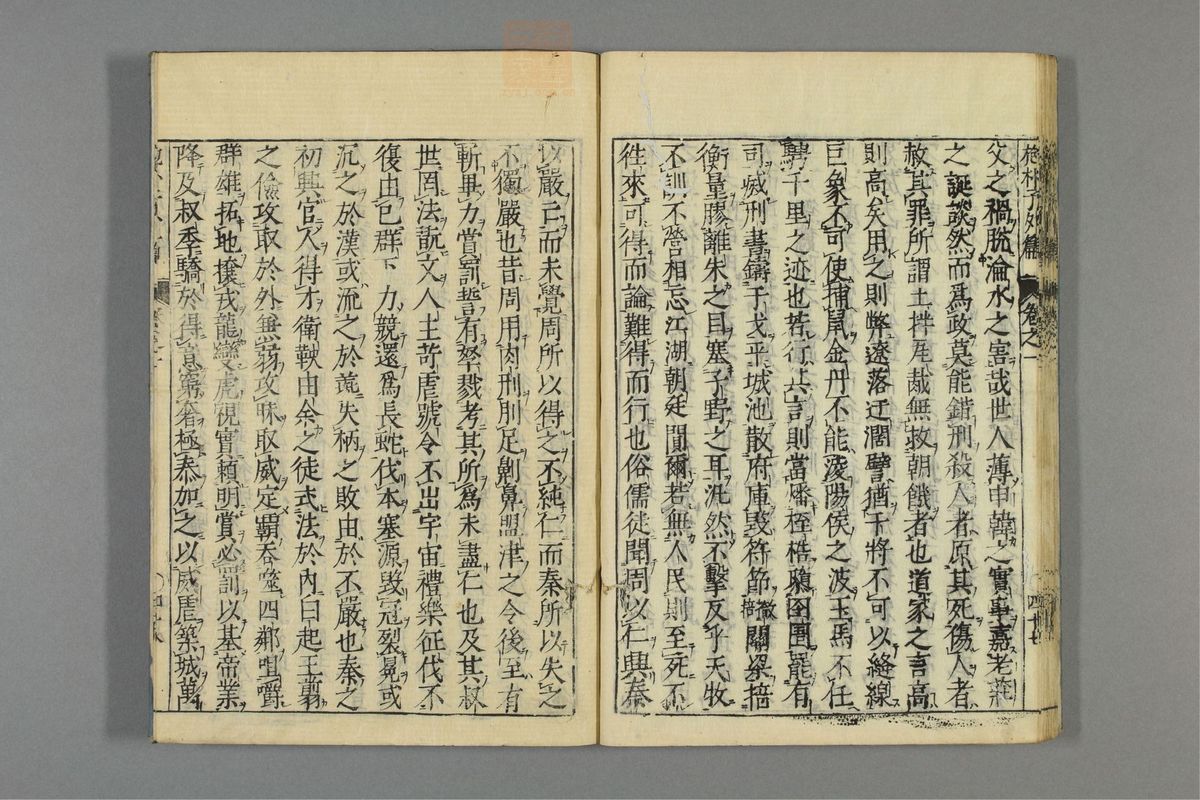 抱朴子外篇 卷之一 四十七
父之禍脫淪水之害哉世人薄申韓之實事嘉老莊
之誕談然而爲政莫能錯刑殺人者原其死傷人者
赦其罪所謂土拌瓦胾無救朝餓者也道家之言高
則高矣用之則弊遼落迂濶譬猶干將不可以縫線
巨象不可使捕鼠金丹不能凌陽侯之波玉馬不任
騁千里之迹也若行其言則當燔桎梏隳囹圄罷有
司滅刑書鑄干戈平城池散府庫毀符節徹關梁掊
衡量膠離朱之目塞子野之耳汎然不擊反乎天牧
不訓不營相忘江湖朝廷闃爾若無人民則至死不
徃來可得而論難得而行也俗儒徒聞周以仁興秦
以嚴亡而未覺周所以得之不純仁而秦所以失之
不獨嚴也昔周用肉刑刖足劓鼻盟津之令後至有
斬畢力賞罰誓有孥戮考其所爲未盡仁也及其叔
世罔法翫文人主苛虐號令不出宇宙禮樂征伐不
復由己群下力競還爲長蛇伐本塞源毀冠裂冕或
沉之於漢或流之於彘失柄之敗由於不嚴也秦之
初興官人得才衛鞅由余之徒式法於內白起王翦
之儉攻取於外兼弱攻昧取威定霸吞噬四鄰咀嚼
群雄拓地攘戎龍變虎視實賴明賞必罰以基帝業
降及叔季驕於得意窮奢極泰加之以威虐築城萬